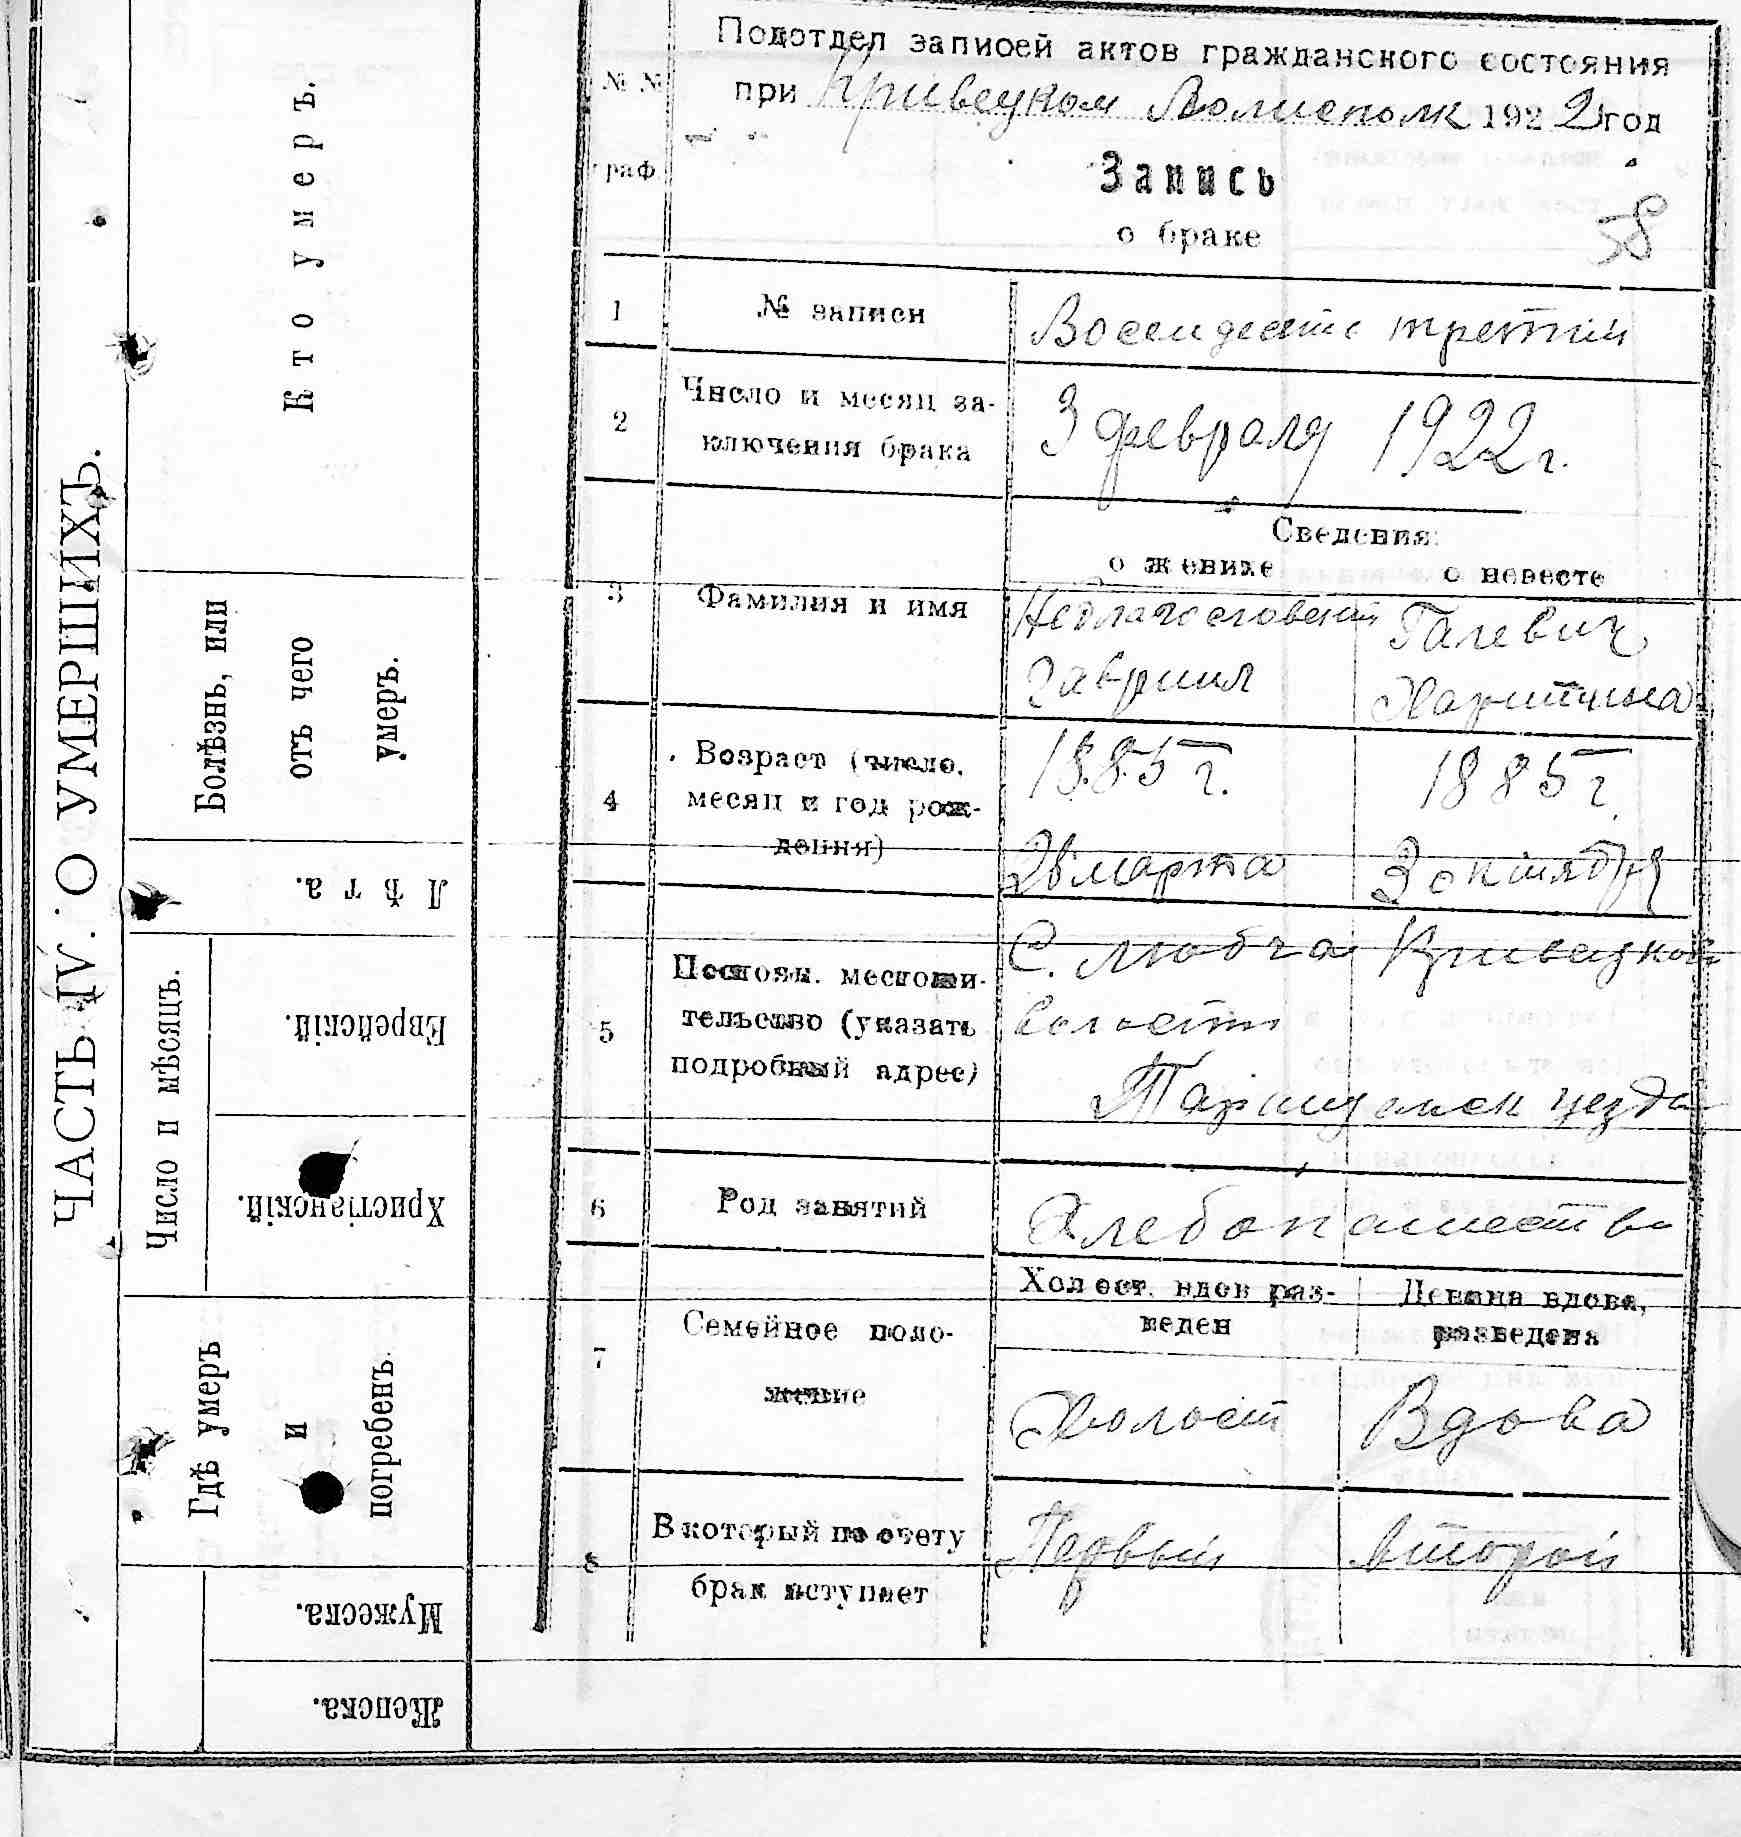 ЧАСТЬ IV. О УМЕРШИХЪ.
Кто умеръ.
Болѣзнь, или
отъ чего
умеръ.
Лѣта.
Число и мѣсяцъ.
Еврейскій.
Христіанскій.
Гдѣ умеръ
и
погребенъ.
Мужеска.
Женска.
Подотдел записей актов гражданского состояния
при Кривецком Волисполк 1922 год
№ №
граф
Запись
о браке
58
1 № записи Восемдесят третий
2 Число и месяц за-
ключения брака
3 февраля 1922 г.
Сведения:
о женихе о невесте
3 Фамилия и имя
Неблагословенн Галевич
Гавриил Харитина
4 Возраст (число,
месяц и год рож-
дения)
1885 г. 1885 г
28 марта 3 октября
5 Постоян. местожи-
тельство (указать
подробный адрес)
С. Любча Кривецкой
волости
Таращанск уезда
6 Род занятий Хлебопашество
7 Семейное поло-
жение
Холост. вдов раз-
веден
Девица вдова,
разведена
Холост Вдова
8 В который по счету
брак вступает
Первый второй